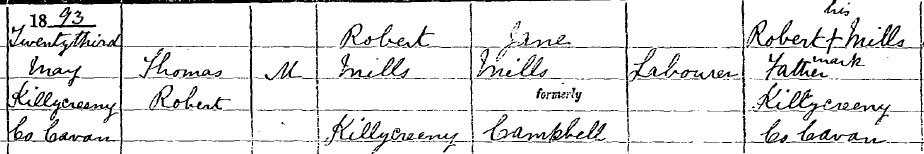 1893
his
Twentythird Robert Jane Robert + Mills
mark
May Thomas M Mills Mills Labourer Father
Killycreeny Robert formerly Killycreeny
Co Cavan Killycreeny Campbell Co Cavan